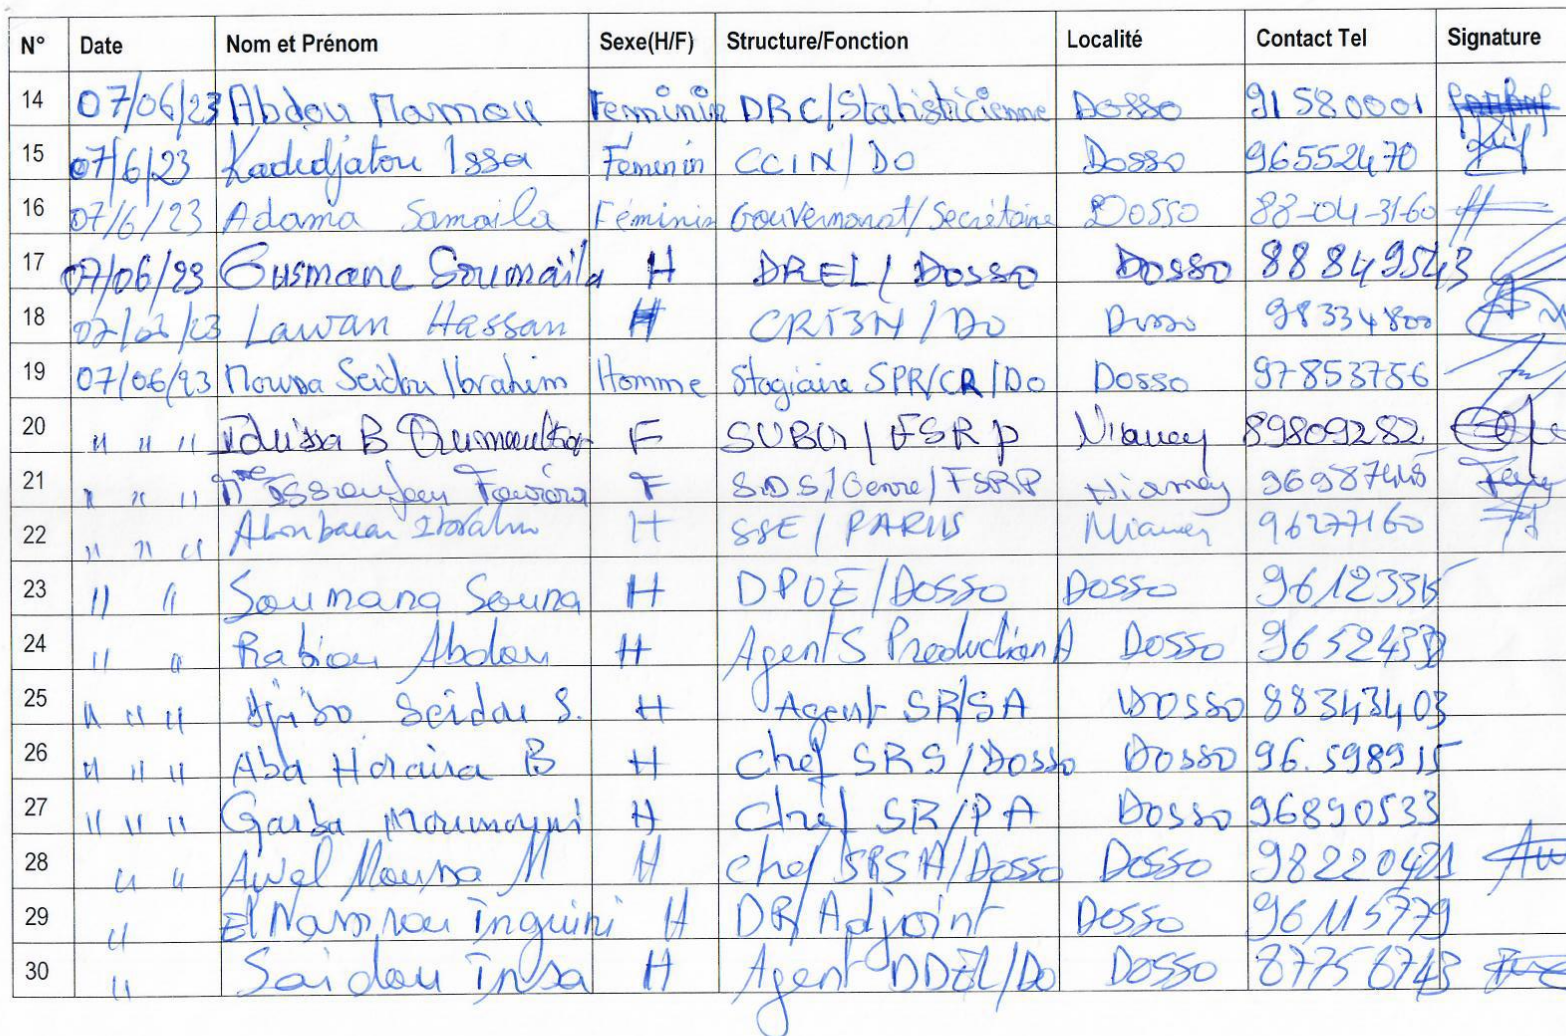 N° Date Nom et Prénom Sexe(H/F) Structure/Fonction Localité Contact Tel Signature
14 07/06/23 Abdou Mamou Feminin DRC/Statisticienne Dosso 91580001
15 07/6/23 Kadidjatou Issa Féminin CCIN/DO Dosso 96552470
16 07/6/23 Adama Samaila Féminin Gouvernorat/Secrétaire Dosso 88-04-31-60
17 07/06/23 Ousmane Soumaila H DREL/Dosso Dosso 88849543
18 07/06/23 Lawan Hassan H CRI3N/Do Dosso 98334800
19 07/06/23 Moussa Seidou Ibrahim Homme Stagiaire SPR/CR/Do Dosso 97853756
20 " " " B F FSRP Niamey 89809282
21 " " " Mme F S.D.S/Genre/FSRP Niamey
22 " " " Aboubacar Ibrahim H SSE/PARIIS Niamey 96277160
23 " " Soumana Souna H DPOE/Dosso Dosso
24 " " Rabiou Abdou H Agent S Production A Dosso
25 " " " Djibo Seidou S. H Agent SR/SA Dosso 88343403
26 " " " Aba Horaira B H Chef SRS/Dosso Dosso 96.598915
27 " " " Garba Moumouni H Chef SR/PA Dosso 96890533
28 " " Awel Moussa M H Chef SRSA/Dosso Dosso 98220421
29 " Inguini H DR/Adjoint Dosso 96115779
30 " Saidou Insa H Agent DDEL/Do Dosso 87756743